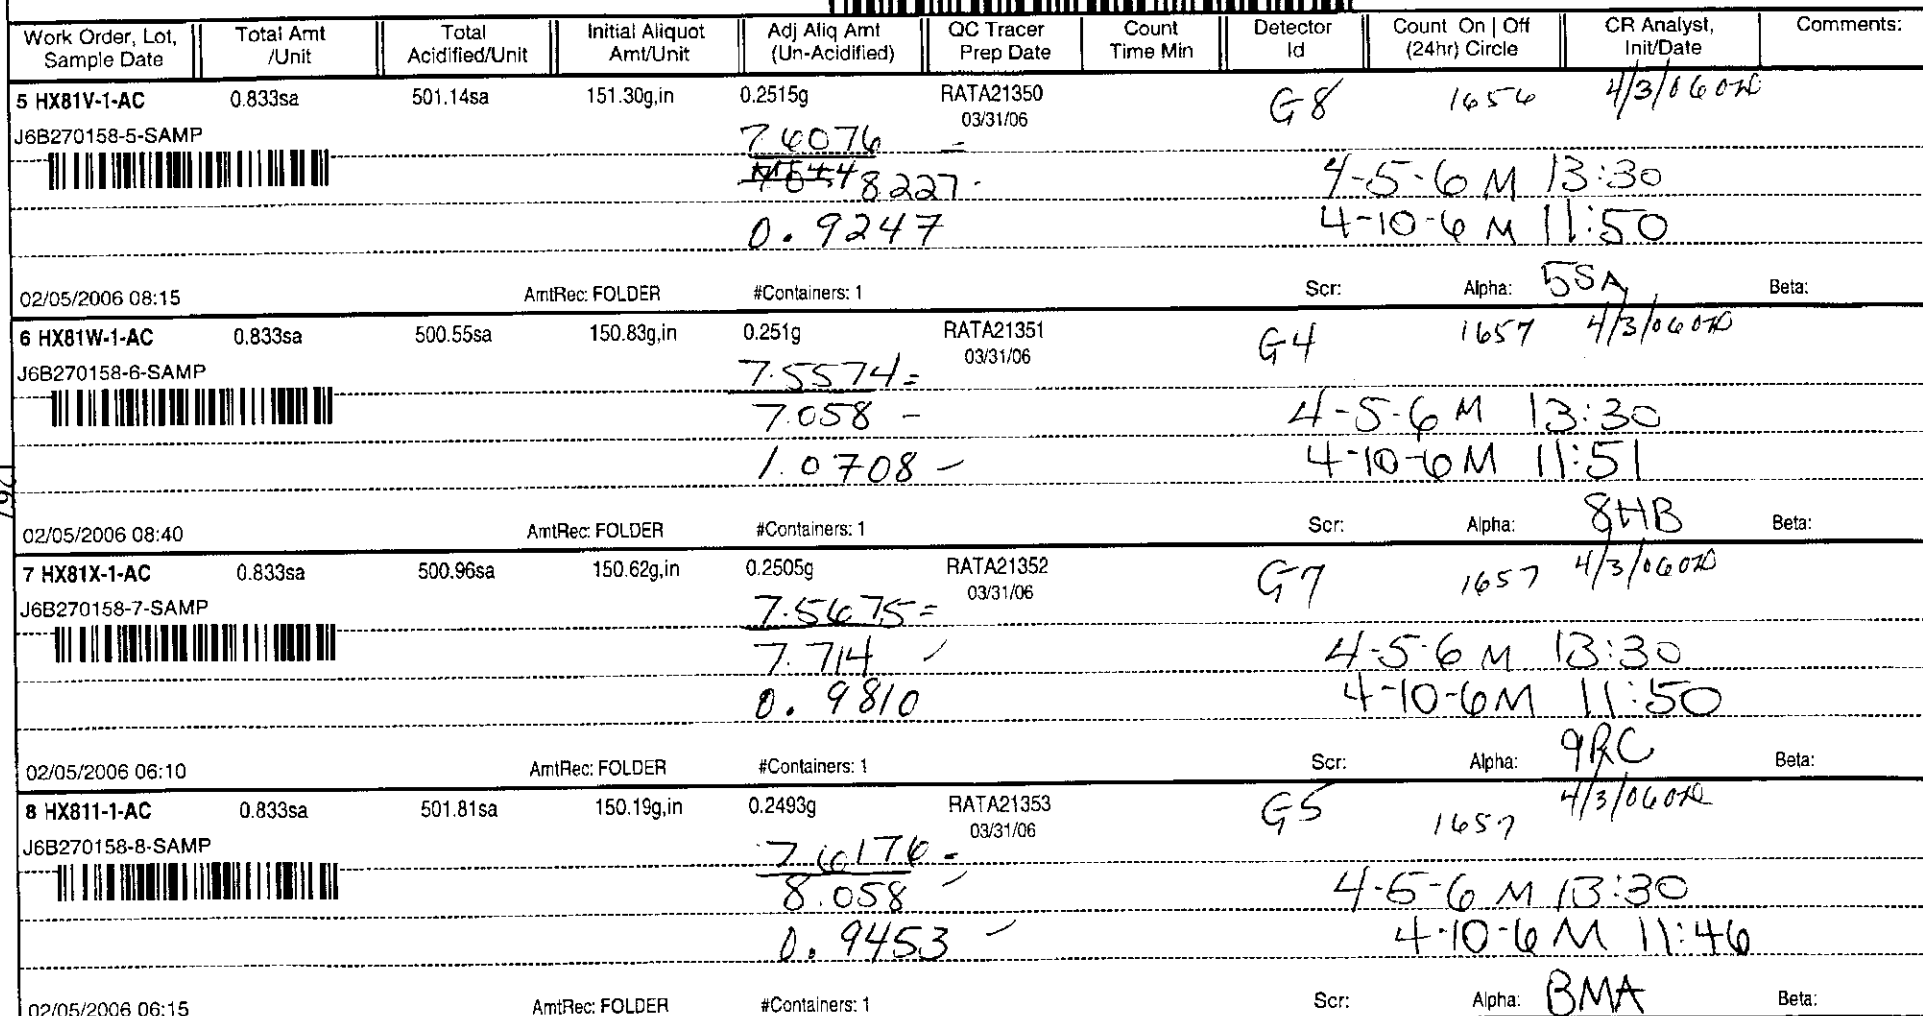 Work Order, Lot, Sample Date | Total Amt /Unit | Total Acidified/Unit | Initial Aliquot Amt/Unit | Adj Aliq Amt (Un-Acidified) | QC Tracer Prep Date | Count Time Min | Detector Id | Count On | Off (24hr) Circle | CR Analyst, Init/Date | Comments:
5 HX81V-1-AC 0.833sa 501.14sa 151.30g,in 0.2515g RATA21350 G8 1656 4/3/06
03/31/06
J6B270158-5-SAMP 7.6076
8.227 4-5-6 M 13:30
0.9247 4-10-6 M 11:50
02/05/2006 08:15 AmtRec: FOLDER #Containers: 1 Scr: Alpha: 5SA Beta:
6 HX81W-1-AC 0.833sa 500.55sa 150.83g,in 0.251g RATA21351 G4 1657 4/3/06
03/31/06
J6B270158-6-SAMP 7.5574=
7.058 - 4-5-6 M 13:30
1.0708 - 4-10-6 M 11:51
02/05/2006 08:40 AmtRec: FOLDER #Containers: 1 Scr: Alpha: 8HB Beta:
7 HX81X-1-AC 0.833sa 500.96sa 150.62g,in 0.2505g RATA21352 G7 1657 4/3/06
03/31/06
J6B270158-7-SAMP 7.5675=
7.714 4-5-6 M 13:30
0.9810 4-10-6 M 11:50
02/05/2006 06:10 AmtRec: FOLDER #Containers: 1 Scr: Alpha: 9RC Beta:
8 HX811-1-AC 0.833sa 501.81sa 150.19g,in 0.2493g RATA21353 G5 1657 4/3/06
03/31/06
J6B270158-8-SAMP 7.6176=
8.058 4-5-6 M 13:30
0.9453 4-10-6 M 11:46
02/05/2006 06:15 AmtRec: FOLDER #Containers: 1 Scr: Alpha: BMA Beta: